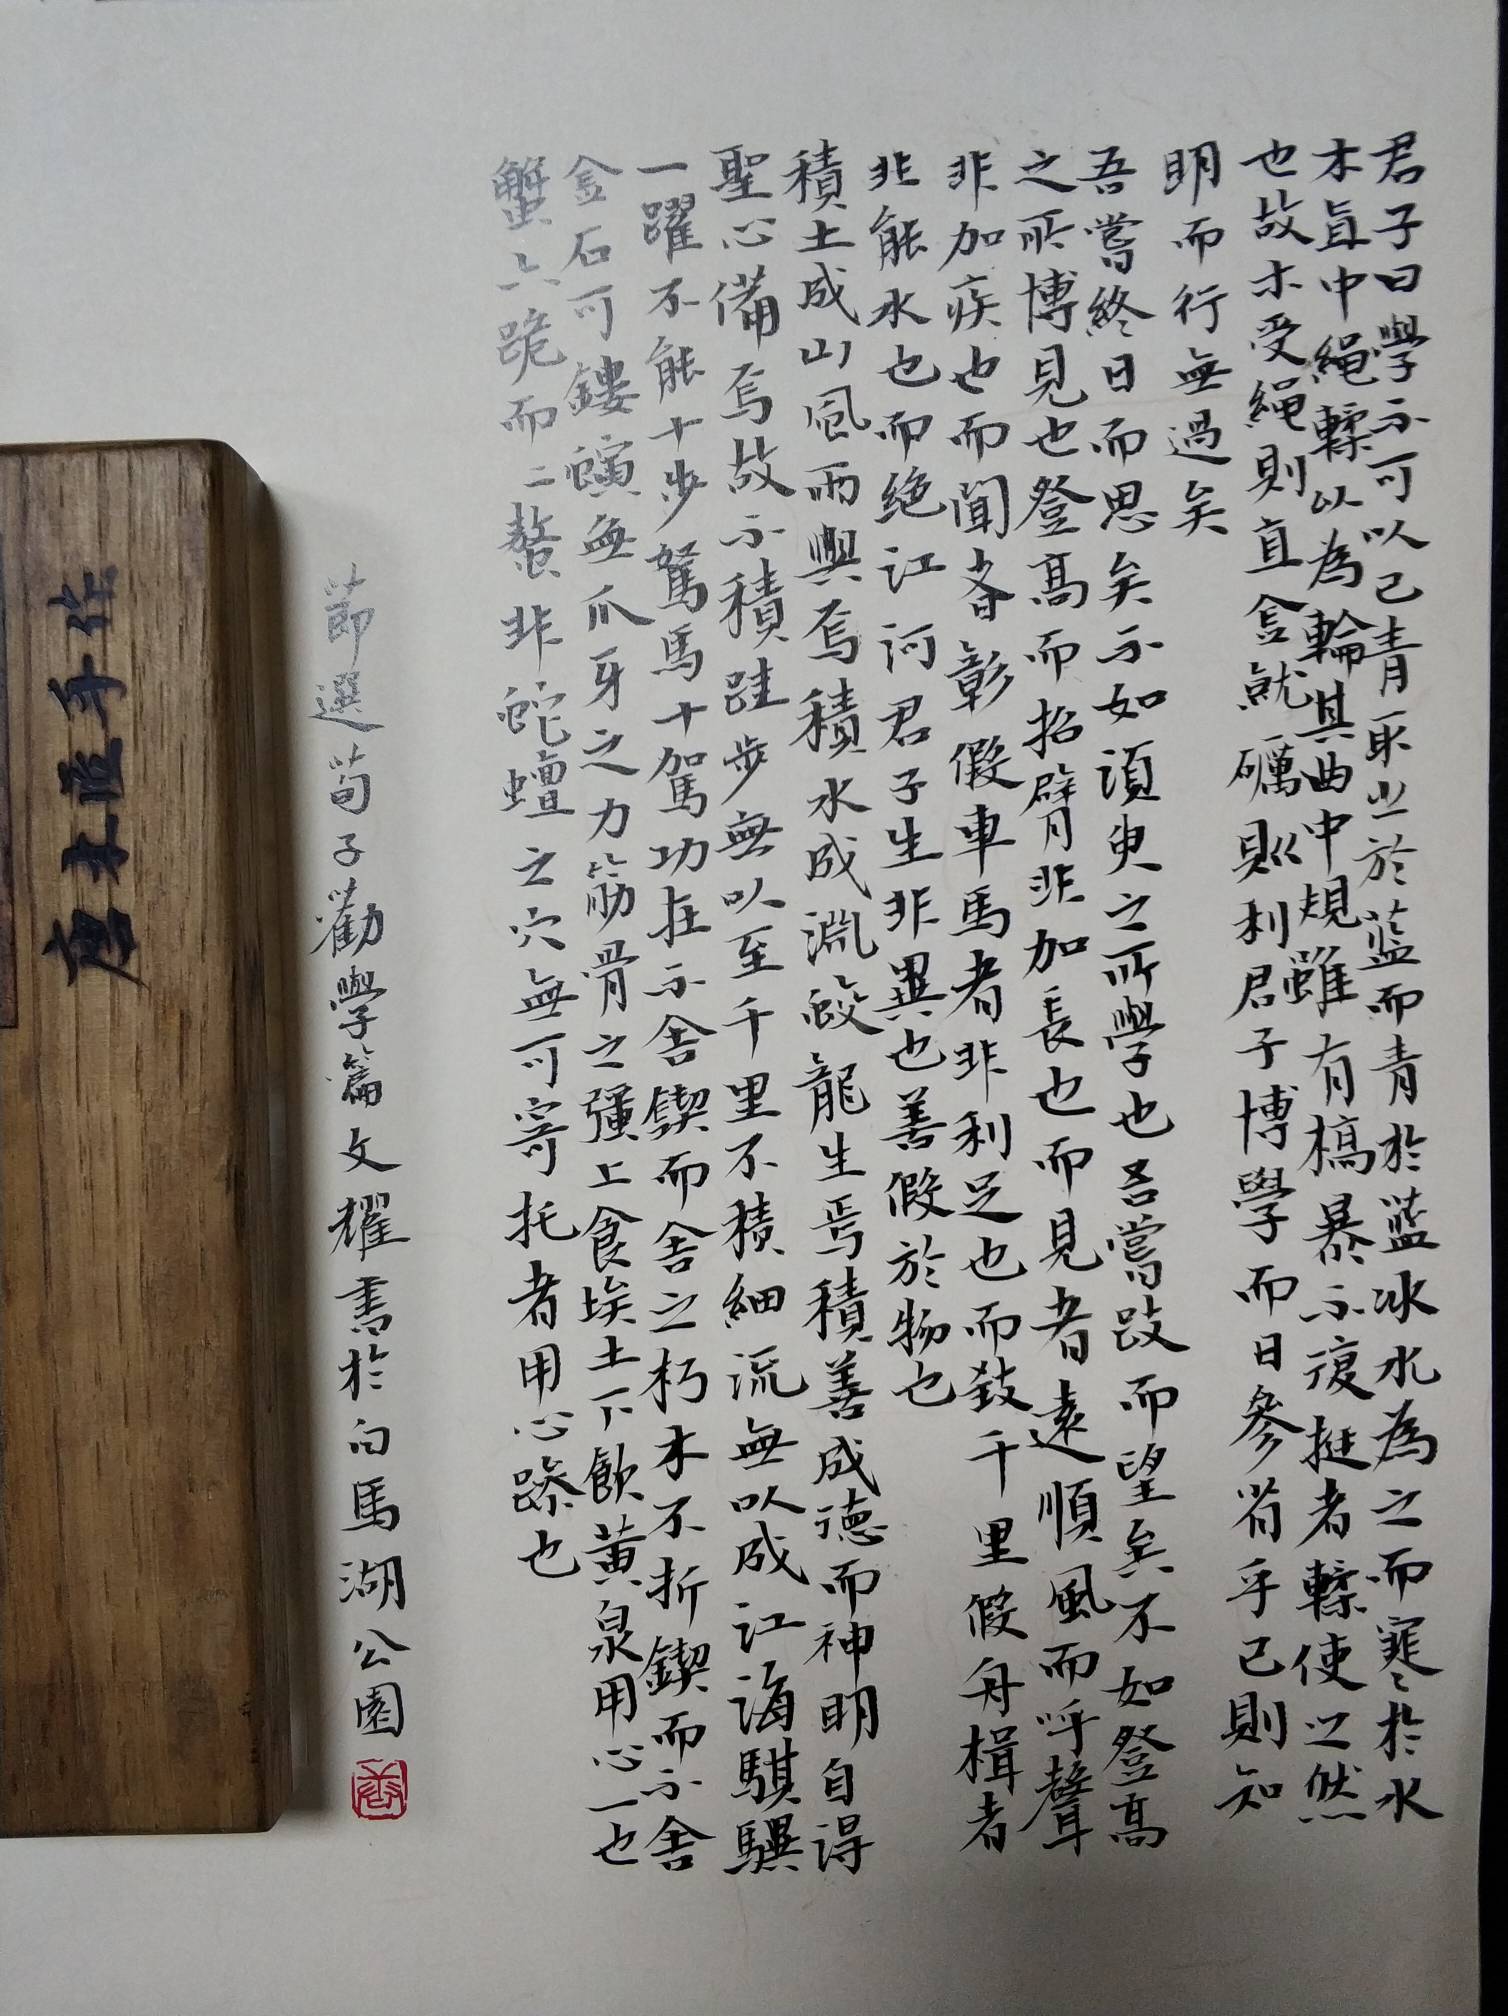 君子曰學不可以已青取之於藍而青於藍冰水為之而寒於水
木直中繩輮以為輪其曲中規雖有槁暴不復挺者輮使之然
也故木受繩則直金就礪則利君子博學而日參省乎己則知
明而行無過矣
吾嘗終日而思矣不如須臾之所學也吾嘗跂而望矣不如登高
之所博見也登高而招臂非加長也而見者遠順風而呼聲
非加疾也而聞者彰假車馬者非利足也而致千里假舟楫者
非能水也而绝江河君子生非異也善假於物也
積土成山風雨興焉積水成淵蛟龍生焉積善成德而神明自得
聖心備焉故不積跬步無以至千里不積細流無以成江海騏驥
一躍不能十步駑馬十駕功在不舍鍥而舍之朽木不折鍥而不舍
金石可鏤螾無爪牙之力筋骨之強上食埃土下飲黃泉用心一也
蟹六跪而二螯非蛇蟺之穴無可寄托者用心躁也
節選荀子勸學篇文耀書於白馬湖公園